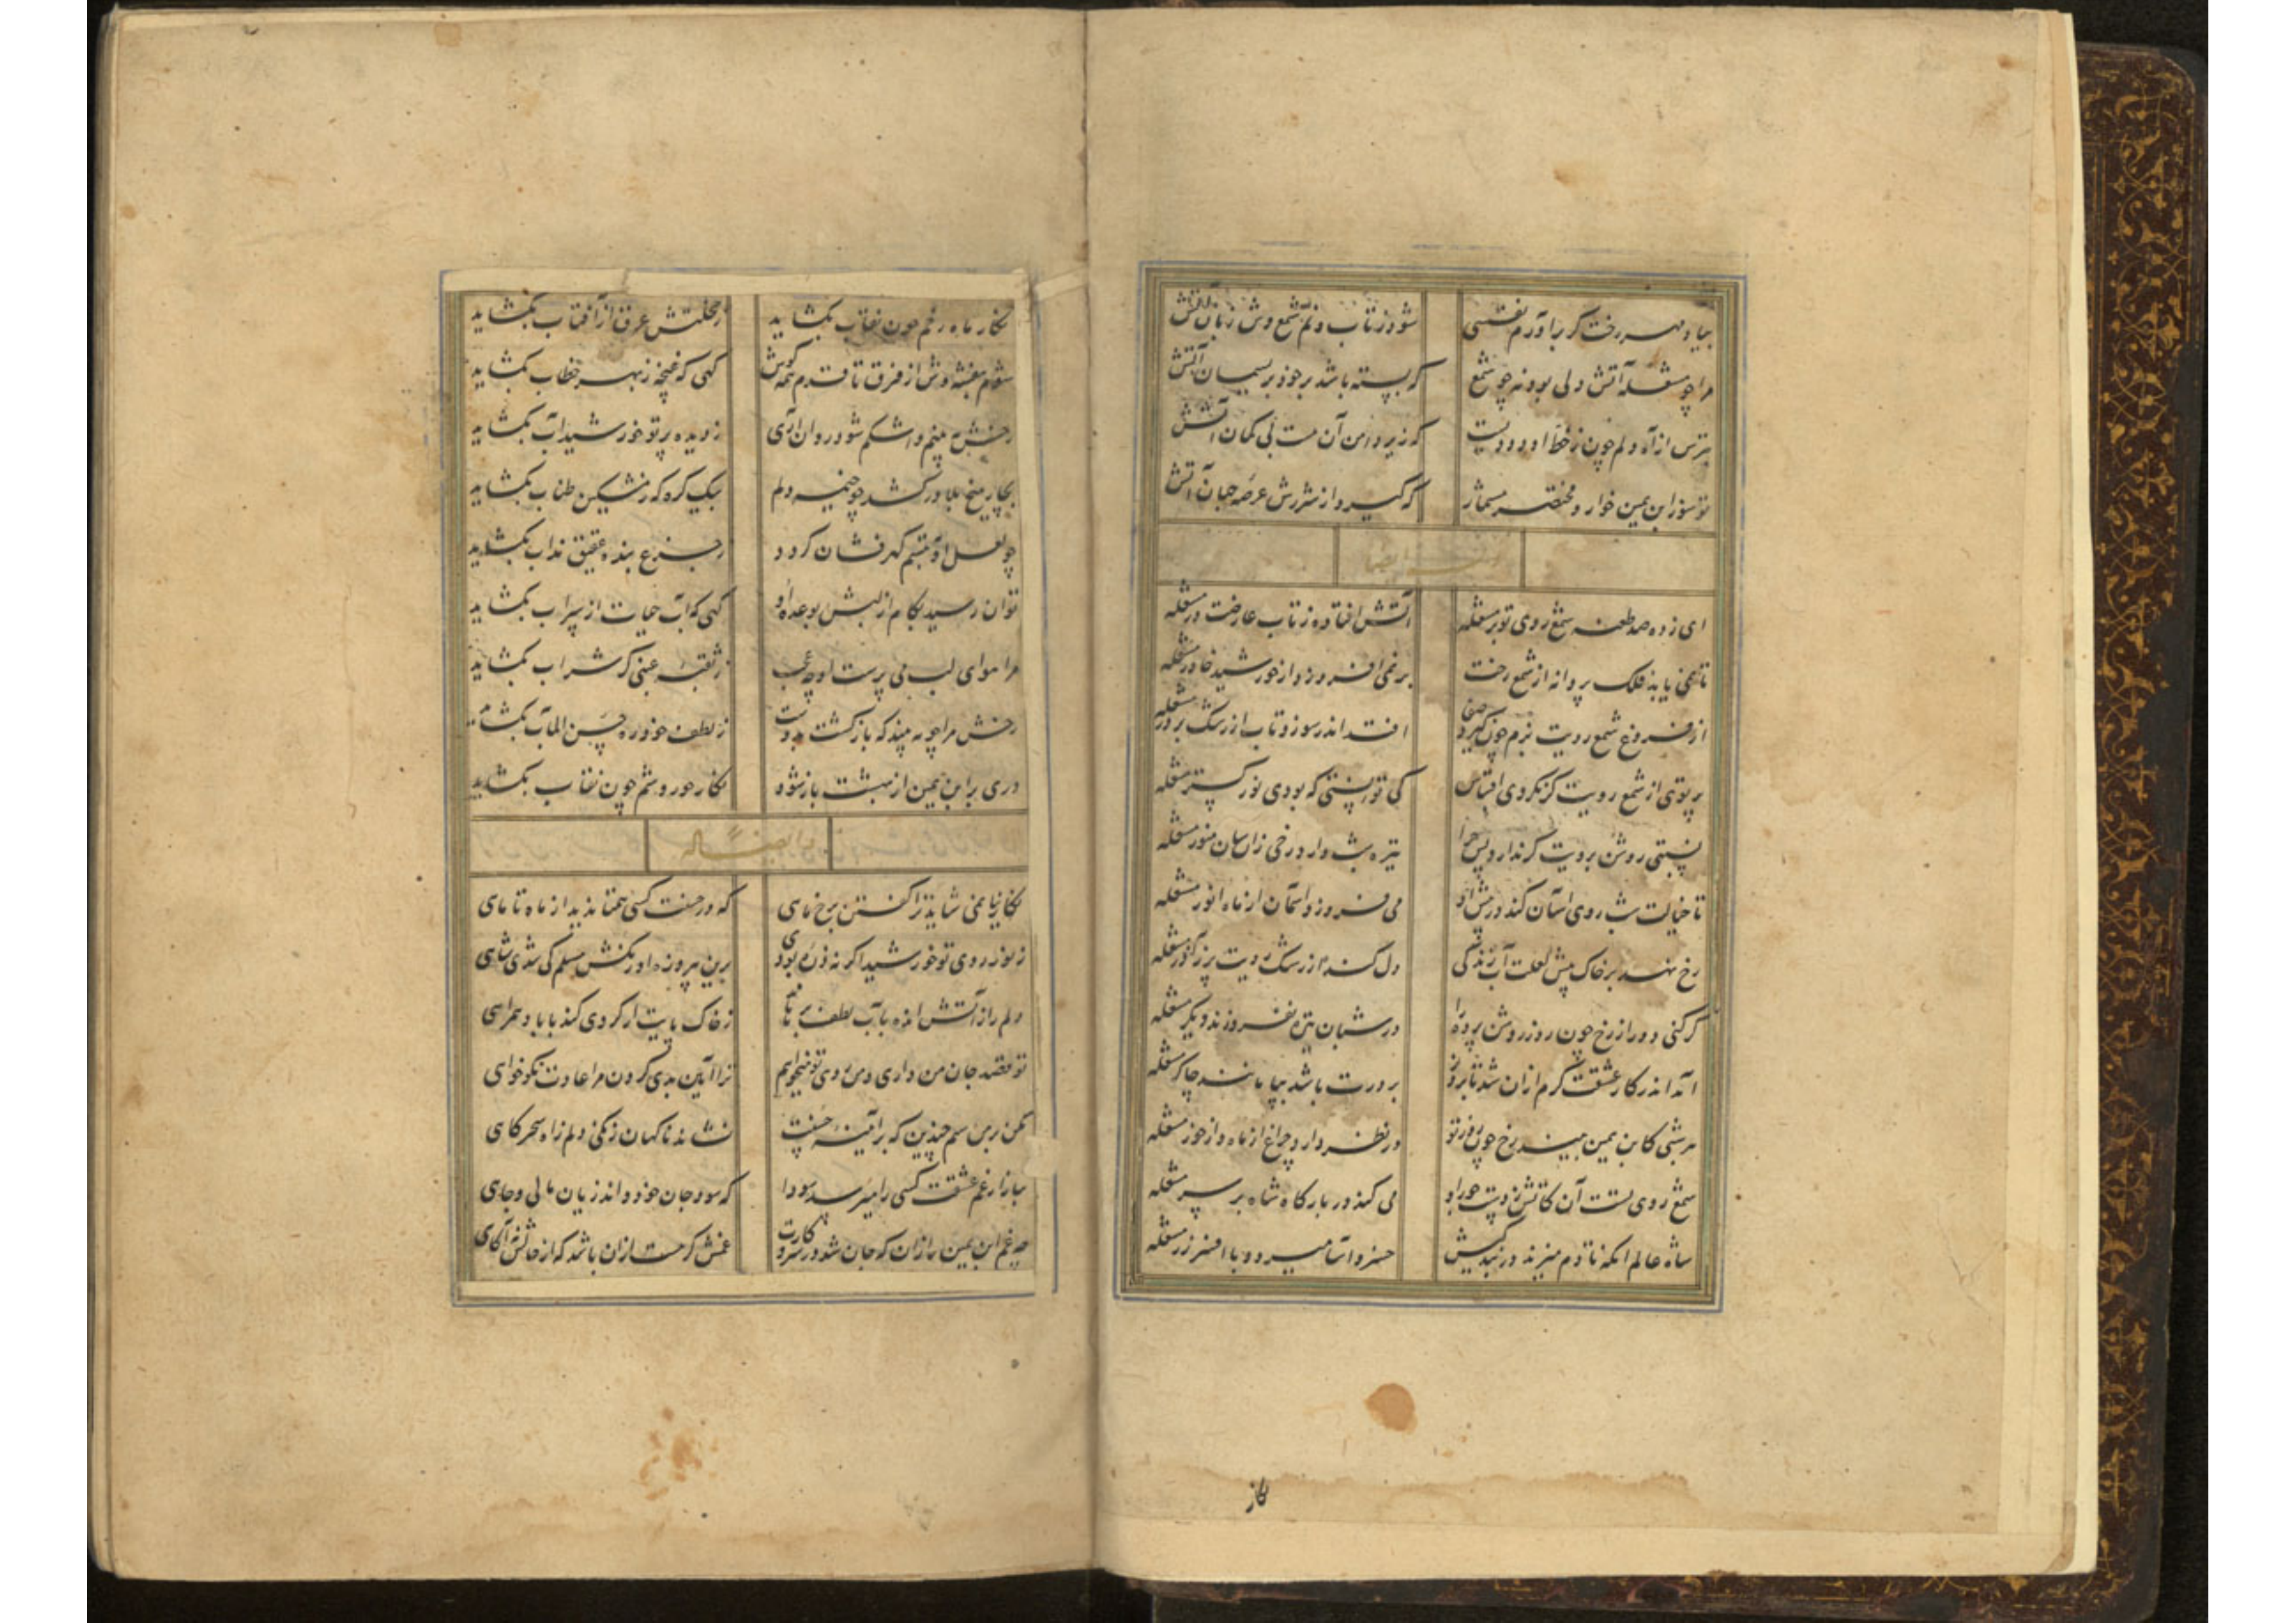 بیاد مهر رخت گر برآورم نفسی شود ز تاب دلم شمع وش زبان آتش
مرا چو مشعله آتش دلی بود نه چو شمع که بسته باشد بر خود بریسمان آتش
بترس از آه دلم چون ز خط او دودیست که زیر دامن آن هست بی کمان آتش
تو سوز ابن یمین خوار و مختصر مشمار که گیرد از شررش عرصه جهان آتش
ایضا
ای زده صد طعنه شمع روی تو بر مشعله آتش افتاده ز تاب عارضت در مشعله
تا نمی یابد فلک پروانه از شمع رخت بر نمی افروزد از خورشید خاور مشعله
از فروغ شمع رویت بزم چون گیرد صفا افتد اندر سوز و تاب از رشک بر در مشعله
پرتوی از شمع رویت گر نکردی اقتباس کی توانستی که بودی نور گستر مشعله
نسبتی روشن برویت گر ندارد پس چرا تیره شب دارد رخی زان سان منور مشعله
تا خیالت شب روی آسان کند در پیش او می فروزد آسمان از ماه انور مشعله
رخ نهد بر خاک پیش لعلت آب زندگی دل کند از رشک رویت پر ز آذر مشعله
گر کنی دور از رخ چون روز روشن پرده را در شبان تیره نفروزند دیگر مشعله
آمد اندر کار عشقت گرم از آن شد تا بروز بر درت باشد بپا مانند چاکر مشعله
هر شبی کابن یمین بیند رخ چون روز تو در نظر دارد چراغ از ماه و از خور مشعله
شمع روی تست آن کاتش زدست چون او می کند در بارگاه شاه بر سر مشعله
شاه عالم آنکه تا دم میزند در بندگیش خسرو آسا میرود با افسر زر مشعله
نگار
نگار ماه رخم چون نقاب بگشاید ز خجلتش عرق از آفتاب بگشاید
شوم بنفشه وش از فرق تا قدم همه گوش گهی که غنچه ز بهر خطاب بگشاید
رخش به بینم و اشکم شود روان آری ز دیده پرتو خورشید آب بگشاید
بچار میخ بلا درکشد چو خیمه دلم بیک گره که ز مشکین طناب بگشاید
چو لعل او به تبسم گهرفشان گردد ز جزع بنده عقیق مذاب بگشاید
توان رسید بکام از لبش بوعده او گهی که آب حیات از سراب بگشاید
مرا هوای لب می پرست او چه عجب ز ثقبه عنبی گر شراب بگشاید
رخش مرا چو به بیند که بازگشت بدوست ز لطف خود ره حسن المآب بگشاید
دری بر ابن یمین از بهشت باز شود نگار حوروشم چون نقاب بگشاید
و ایضاً له
نگارینا نمی شاید ترا گفتن برخ ماهی که در حسنت کسی همتا ندید از ماه تا ماهی
ز نور روی تو خورشید اگر نه ذره بودی برین پیروزه اورنگش مسلم کی شدی شاهی
دلم را ز آتش اندوه بآب لطف بر ز خاک پایت ار گردی کند با باد همراهی
تو قصد جان من داری و من روی تو میخواهم ترا آیین بدی کردن مرا عادت نکوخواهی
مکن بر من ستم چندین که بر آیینه حسنت نشاند ناگهان زنگی دلم ز آه سحرگاهی
ببازار غم عشقت کسی را میرسد سودا که سود جان خود داند زیان مالی و جاهی
چه غم ابن یمین را زان که جان شد در سر کارت غمش گر هست از آن باشد که از حالش نه آگاهی